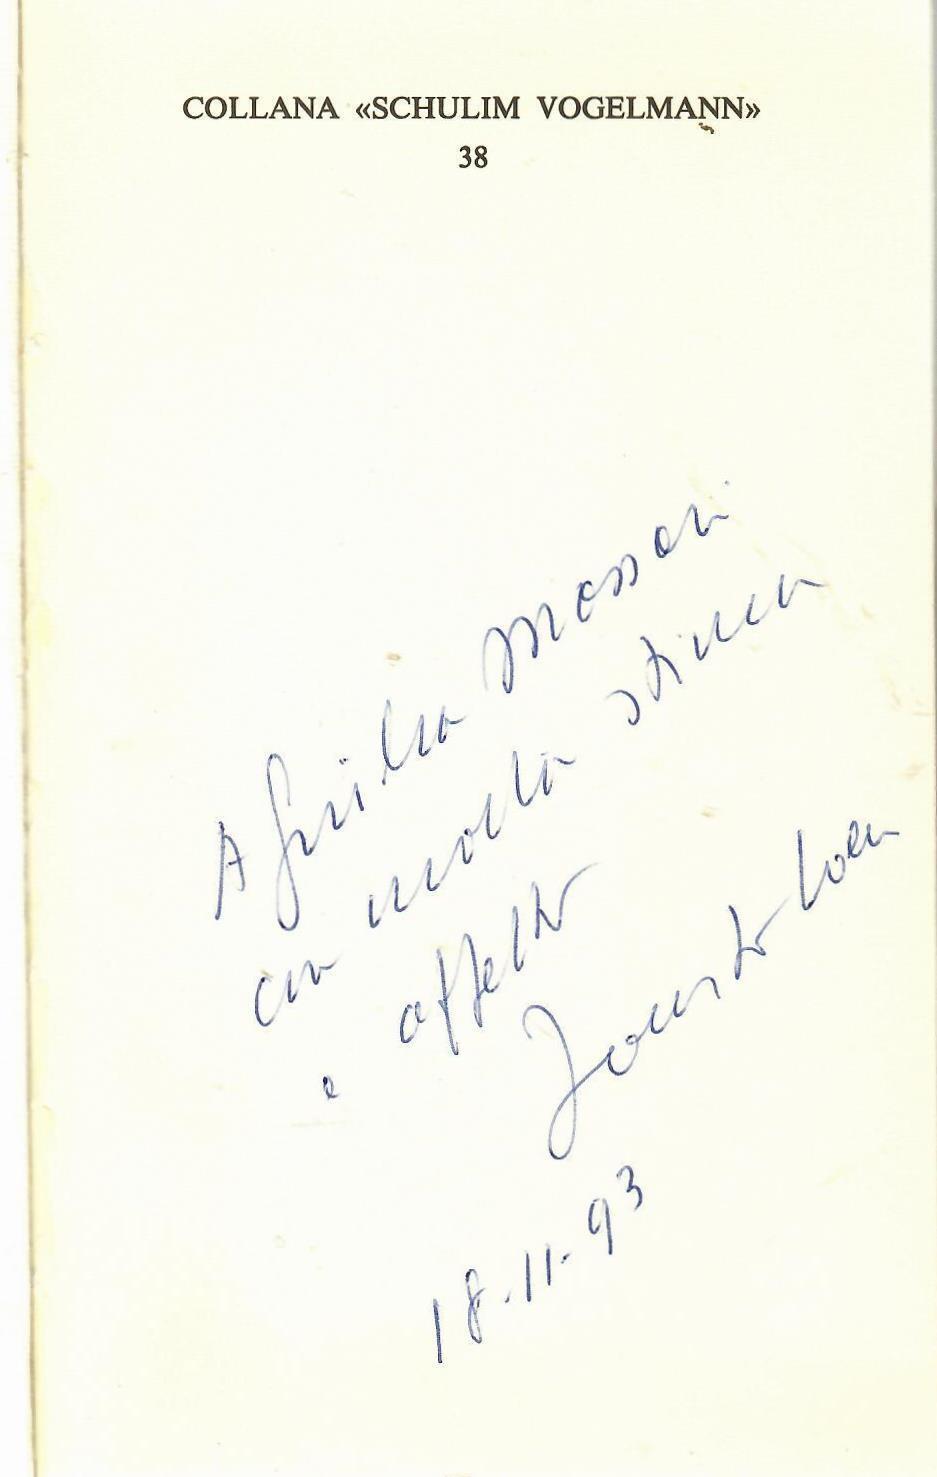 COLLANA «SCHULIM VOGELMANN»
38
A Giulia Massari
con molta stima
e affetto
18-11-93